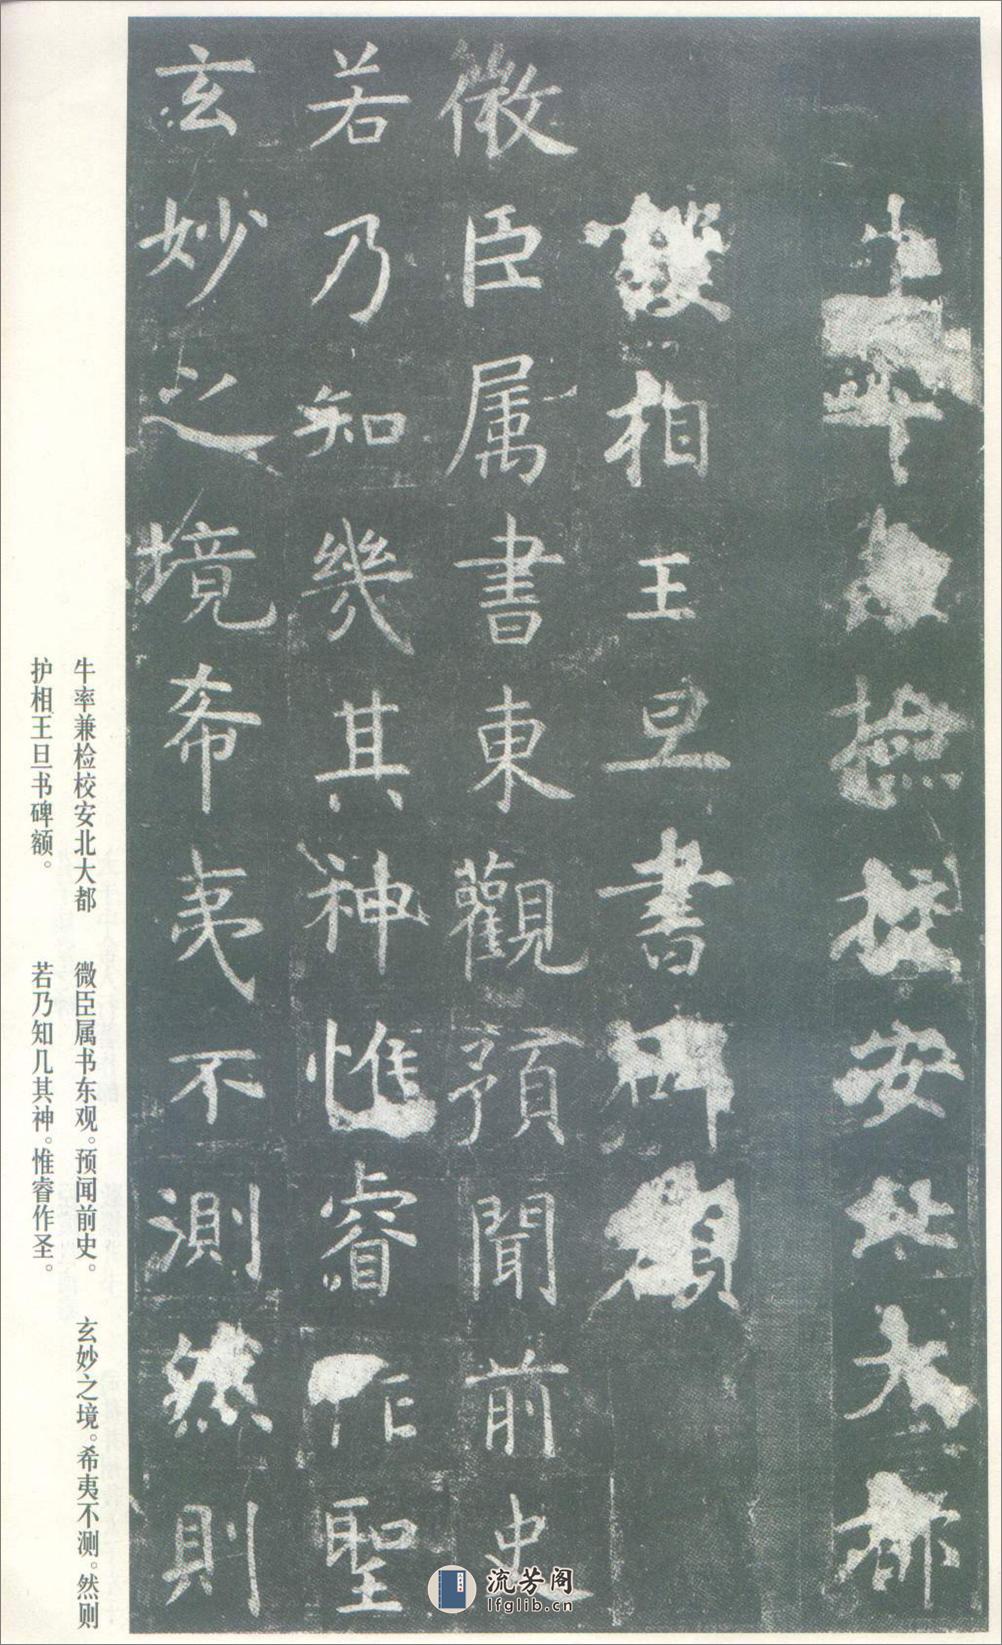 牛率兼撿校安北大都
護相王旦書碑額
微臣属書東觀預聞前史
若乃知幾其神惟睿作聖
玄妙之境希夷不測然則
牛率兼检校安北大都
护相王旦书碑额。
微臣属书东观。预闻前史。
若乃知几其神。惟睿作圣。
玄妙之境。希夷不测。然则
流芳阁
lfglib.cn